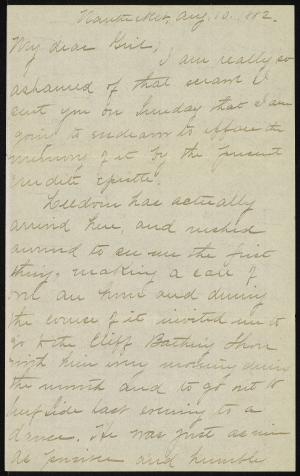 Nantucket, Aug. 10. 1882.
My dear Girl,
I am really so
ashamed of that scrawl I
sent you on Sunday that I am
going to endeavor to efface the
memory of it by the present
erudite epistle.
Leedom has actually
arrived here, and rushed
around to see me the first
thing, making a call of
over an hour and during
the course of it invited me to
go to the Cliff Bathing Shore
with him every morning during
the month and to go out to
Surf Side last evening to a
dance. He was just as nice
as possible and humble